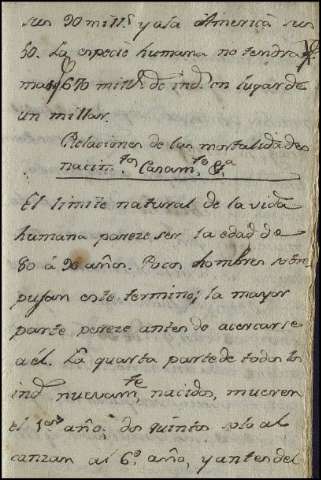 sus 90 mill.s y a la America sus
50. La especie humana no tendra
mas 670 mill.s de ind. en lugar de
un millar.
Relaciones de las mortalidades
nacim.tos Casam.tos &.a
El limite natural de la vida
humana pareze ser la edad de
80 á 90 años. Pocos hombres sobre
pujan este termino; la mayor
parte pereze antes de acercarse
a él. La quarta parte de todos los
ind. nuevam.te nacidos, mueren
el 1.er año; dos quintos solo al
canzan al 6.o año, y antes del